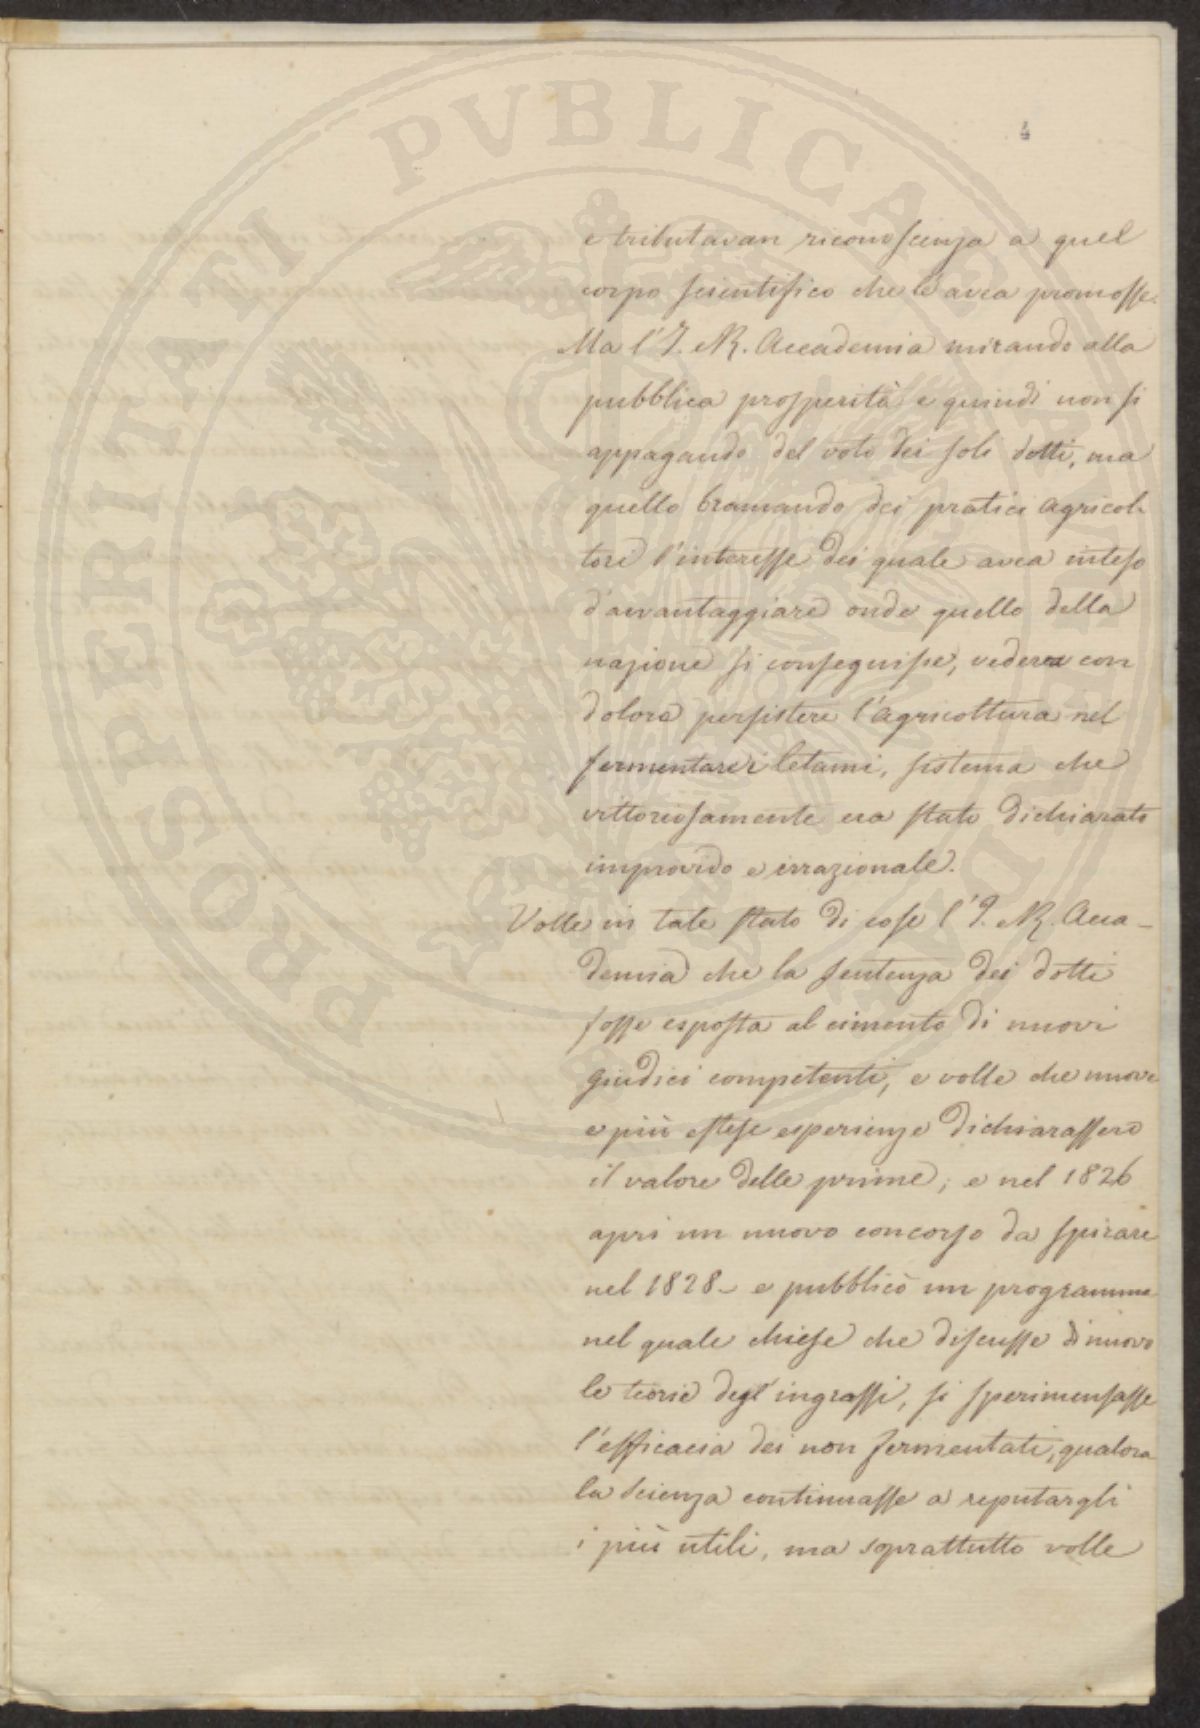 PROSPERITATI PUBLICAE
4
e tributavan riconoscenza a quel
corpo scientifico che le avea promosse.
Ma l'I. R. Accademia mirando alla
pubblica prosperità e quindi non si
appagando del voto dei soli dotti, ma
quello bramando dei pratici agricol-
tori l'interesse dei quale avea inteso
d'avvantaggiare onde quello della
nazione si conseguisse, vedeva con
dolore persistere l'agricoltura nel
fermentare i letami, sistema che
vittoriosamente era stato dichiarato
improvido e irrazionale.
Volle in tale stato di cose l'I. R. Acca-
demia che la sentenza dei dotti
fosse esposta al cimento di nuovi
giudici competenti, e volle che nuove
e più estese esperienze dichiarassero
il valore delle prime; e nel 1826
aprì un nuovo concorso da spirare
nel 1828 - e pubblicò un programma
nel quale chiese che discusse di nuovo
le teorie degl'ingrassi, si sperimentasse
l'efficacia dei non fermentati, qualora
la scienza continuasse a reputargli
i più utili, ma soprattutto volle